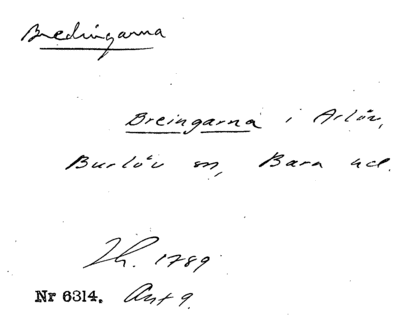 Bredingarna
Breingarna i Arlöv,
Burlöv sn, Bara hd.
Lh. 1789
Nr 6314. Ant 9.